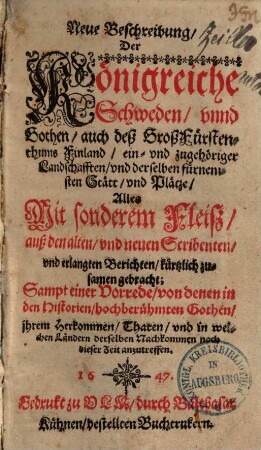 Neue Beschreibung/
Der
Königreiche
Schweden/ vnnd
Gothen/ auch deß GroßFürsten-
thums Finland/ ein- vnd zugehöriger
Landschafften/ vnd derselben fürnem-
sten Stätt/ vnd Plätze/
Alles
Mit sonderem Fleiß/
auß den alten/ vnd neuen Scribenten/
vnd erlangten Berichten/ kürtzlich zu-
samen gebracht;
Sampt einer Vorrede/ von denen in
den Historien/ hochberühmten Gothen/
jhrem Herkommen/ Thaten/ vnd in wel-
chen Ländern derselben Nachkommen noch
dieser Zeit anzutreffen.
16 47.
KÖNIGL. KREISBIBLIOTHEK
IN
AUGSBURG
Gedrukt zu VLM/ durch Balthasar
Kühnen/ bestellten Buchtruckern.
Zeiller